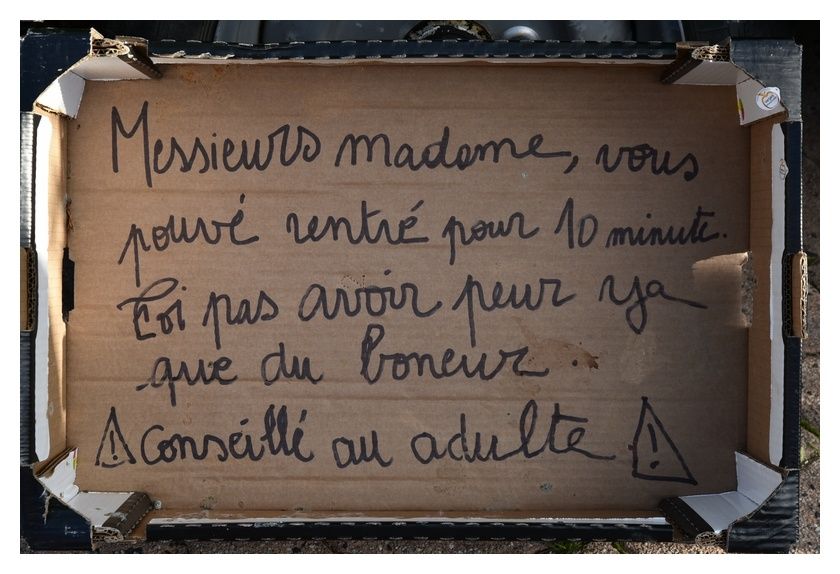 Messieurs madame, vous
pouvé rentré pour 10 minute.
Toi pas avoir peur ya
que du boneur.
⚠ Conseillé au adulte ⚠